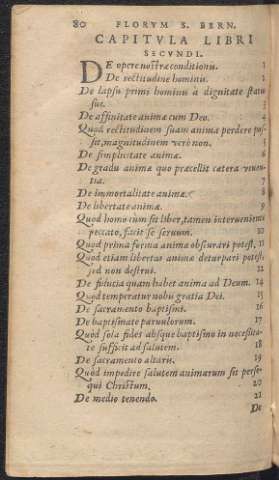 80 FLORVM S. BERN.
CAPITVLA LIBRI
SECVNDI.
DE opere nostræ conditionis. 1
De rectitudine hominis. 2
De lapsu primi hominis à dignitate status
sui. 3
De affinitate animæ cum Deo. 4
Quod rectitudinem suam anima perdere pos-
sit, magnitudinem verò non. 5
De simplicitate animæ. 6
De gradu animæ quo præcellit cætera viuen-
tia. 7
De immortalitate animæ. 8
De libertate animæ. 9
Quod homo cum sit liber, tamen interueniente
peccato, facit se seruum. 10
Quod prima forma animæ obscurari potest. 11
Quod etiam libertas animæ deturpari potest,
sed non destrui. 12
De fiducia quam habet anima ad Deum. 14
Quod temperatur nobis gratia Dei. 15
De sacramento baptismi. 16
De baptismate paruulorum. 17
Quod sola fides absque baptismo in necessita-
te sufficit ad salutem. 18
De sacramento altaris. 19
Quod impedire salutem animarum sit perse-
qui Christum. 20
De medio tenendo. 21
De